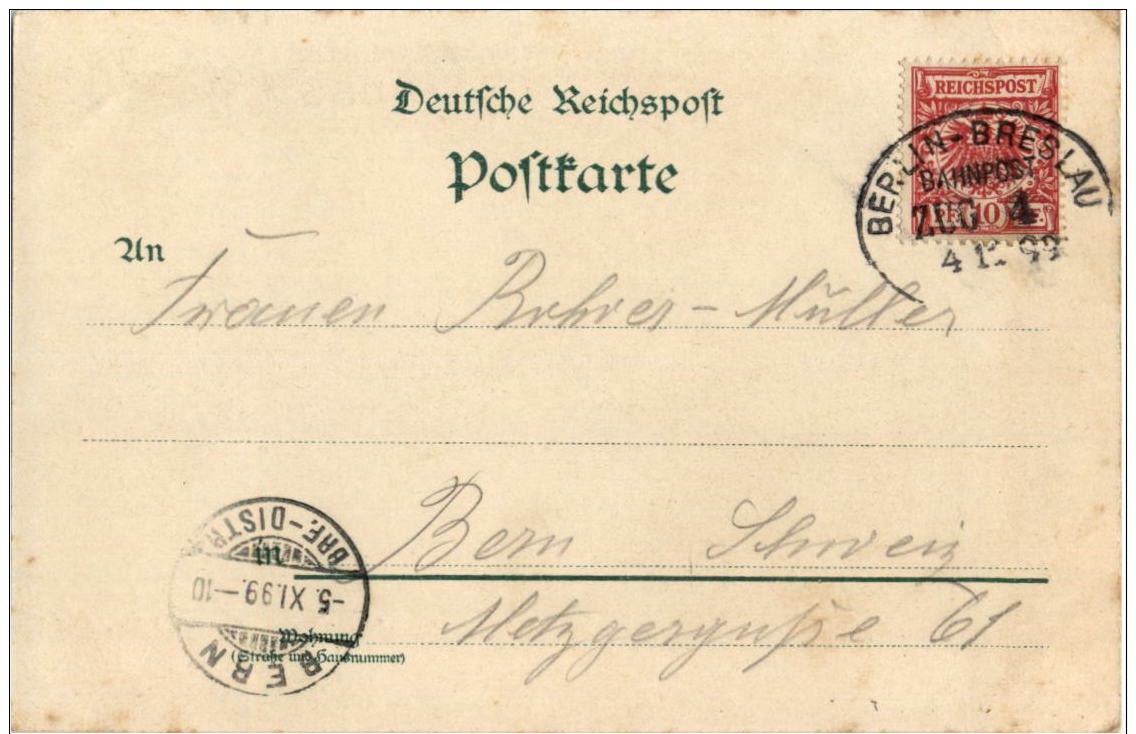 Deutsche Reichspost
Postkarte
REICHSPOST
PF. 10 PF.
BERLIN-BRESLAU
BAHNPOST
ZUG 4
4 11 99
An
Frauen Rohrer-Müller
in Bern Schweiz
Wohnung
(Straße und Hausnummer)
Metzgergasse 61
BERN
-5. XI. 99.-10
BRF.-DISTR.